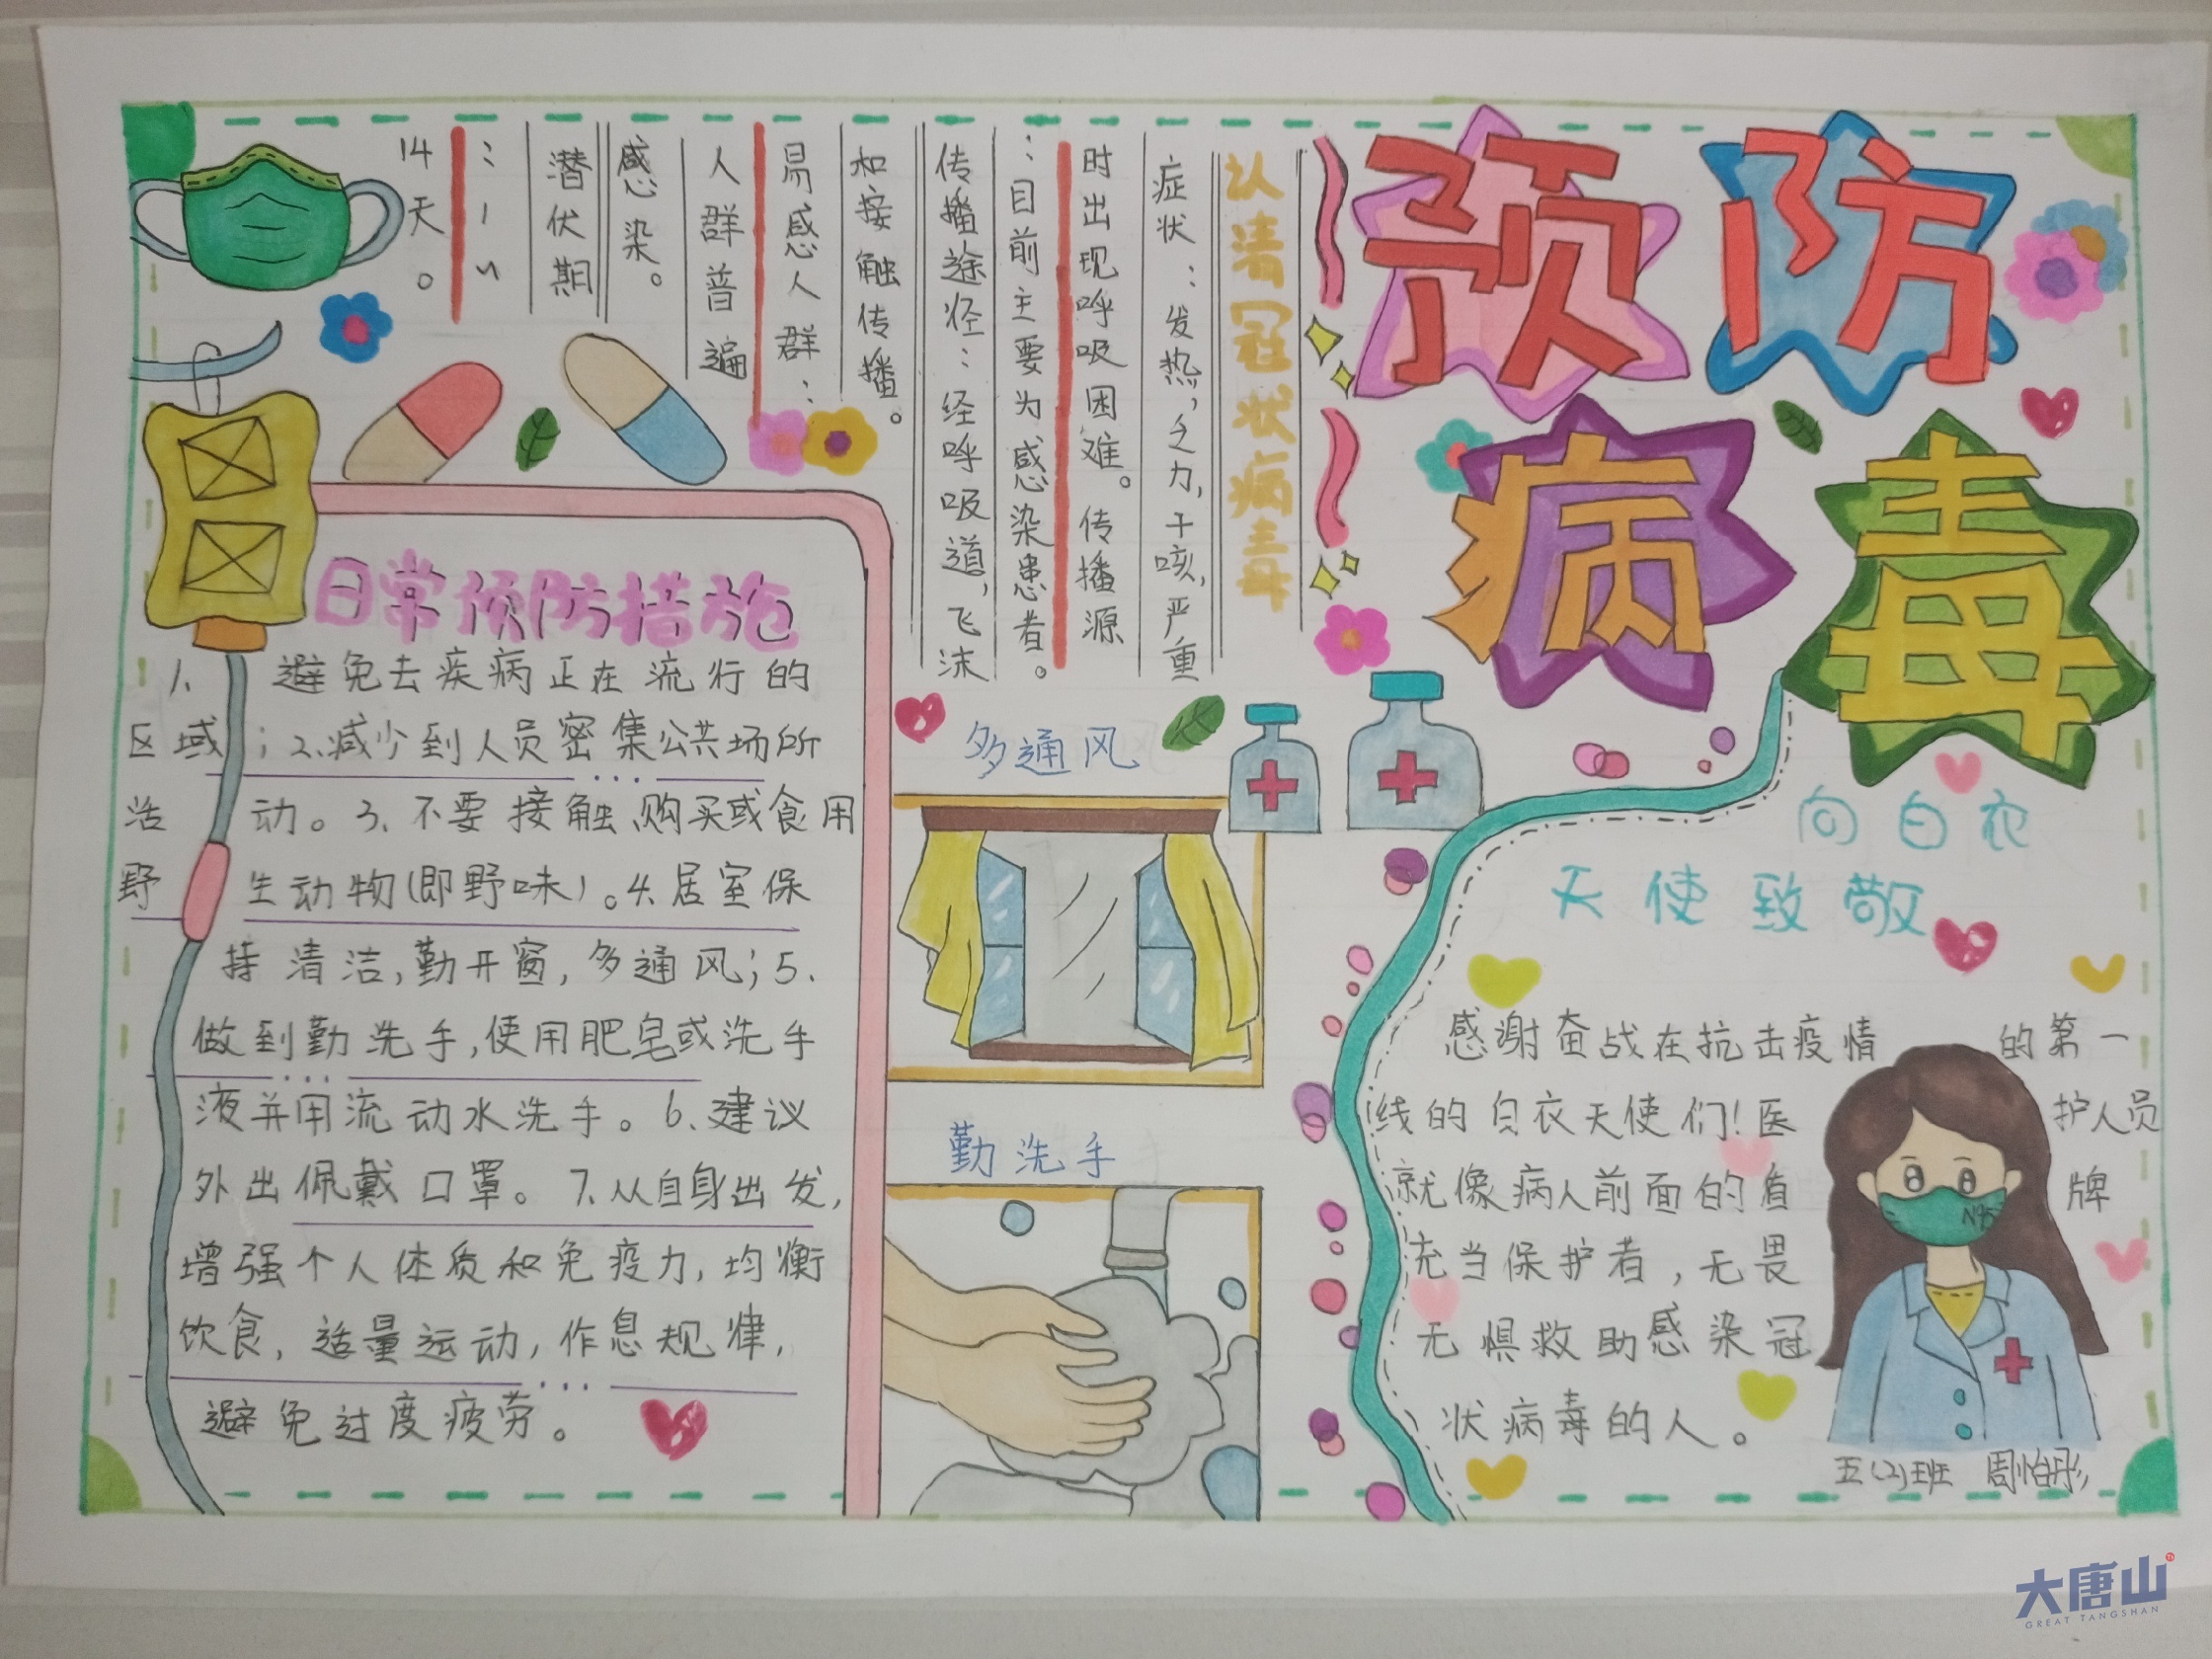 预防
病毒
认清冠状病毒
症状：发热，乏力，干咳，严重
时出现呼吸困难。传播源
：目前主要为感染患者。
传播途径：经呼吸道，飞沫
和接触传播。
易感人群：
人群普遍
感染。
潜伏期
：1~
14天。
日常预防措施
1、避免去疾病正在流行的
区域；2、减少到人员密集公共场所
活动。3、不要接触、购买或食用
野生动物（即野味）。4、居室保
持清洁，勤开窗，多通风；5、
做到勤洗手，使用肥皂或洗手
液并用流动水洗手。6、建议
外出佩戴口罩。7、从自身出发，
增强个人体质和免疫力，均衡
饮食，适量运动，作息规律，
避免过度疲劳。
多通风
勤洗手
向白衣
天使致敬
感谢奋战在抗击疫情的第一
线的白衣天使们！医护人员
就像病人前面的盾牌
充当保护者，无畏
无惧救助感染冠
状病毒的人。
N95
五（2）班 周怡彤
大唐山
GREAT TANGSHAN